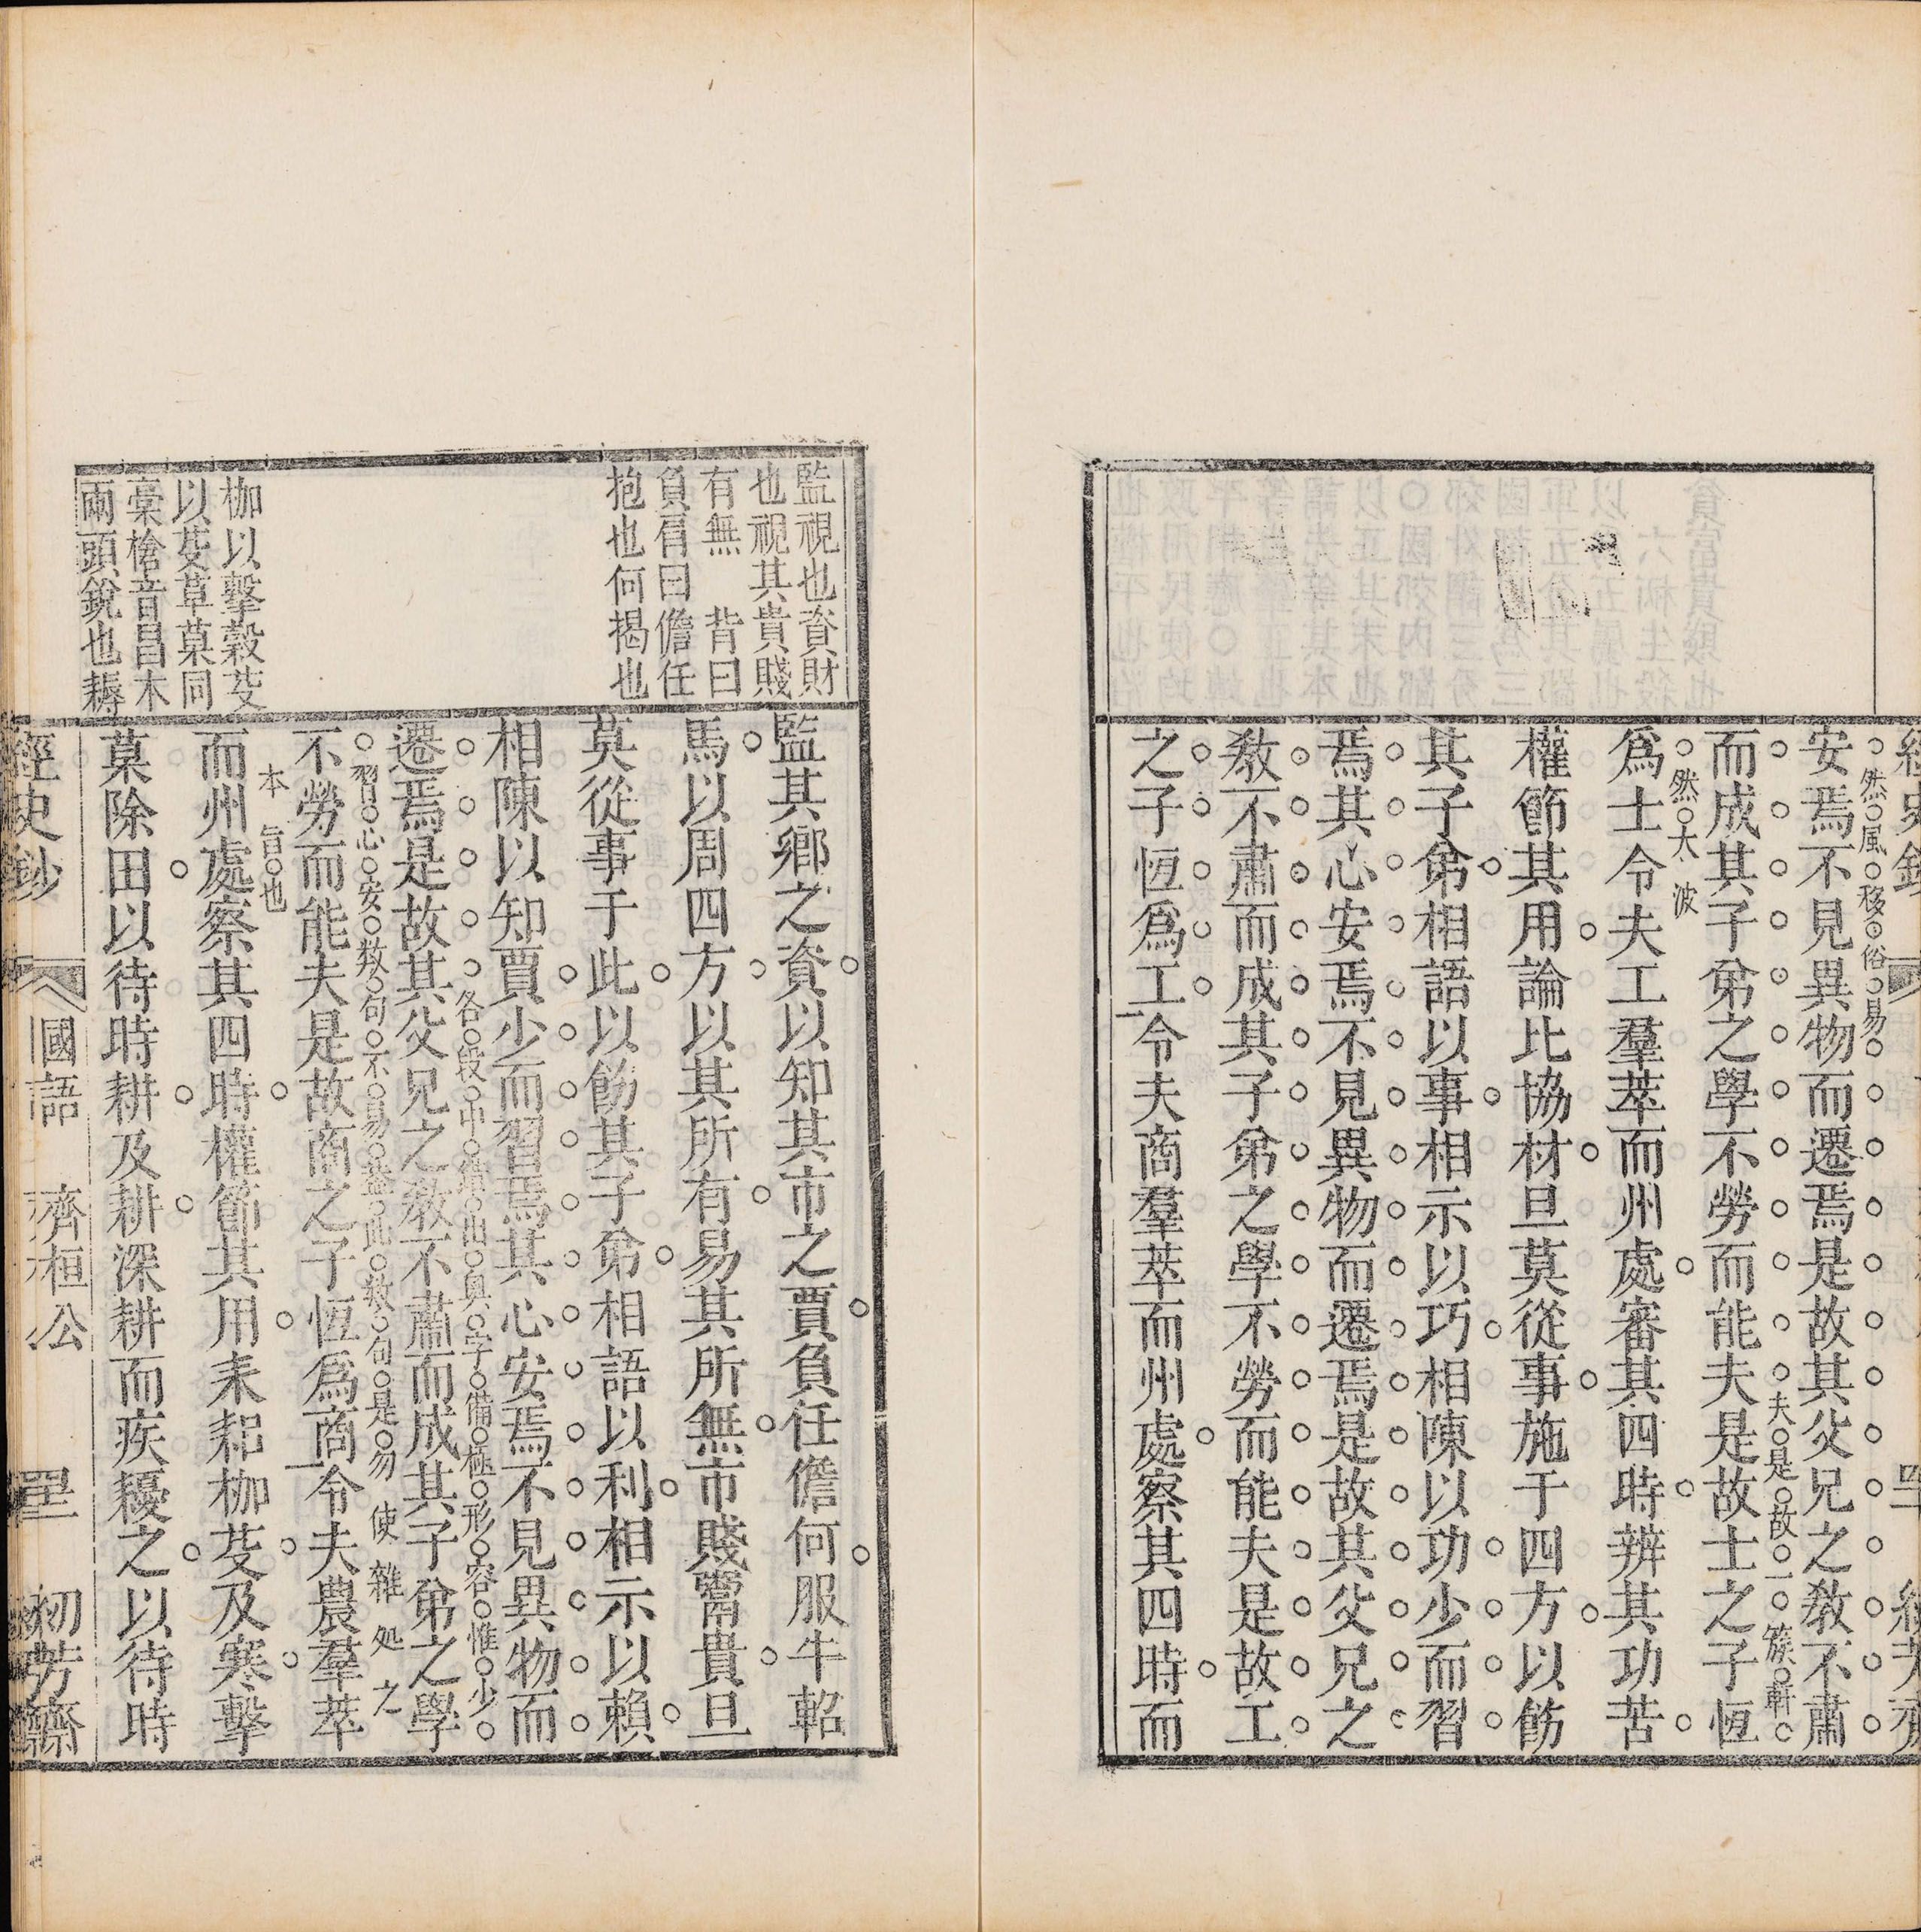 經史鈔
安焉不見異物而遷焉是故其父兄之敎不肅
然風移俗易
而成其子弟之學不勞而能夫是故士之子恆
夫是故一簇
爲士令夫工羣萃而州處審其四時辨其功苦
然大波
權節其用論比協材旦莫從事施于四方以飭
其子弟相語以事相示以巧相陳以功少而習
焉其心安焉不見異物而遷焉是故其父兄之
敎不肅而成其子弟之學不勞而能夫是故工
之子恆爲工令夫商羣萃而州處察其四時而
監視也資財
也視其貴賤
有無 背曰
負肩曰儋任
抱也何揭也
監其鄉之資以知其市之賈負任儋何服牛軺
馬以周四方以其所有易其所無市賤鬻貴旦
莫從事于此以飭其子弟相語以利相示以賴
相陳以知賈少而習焉其心安焉不見異物而
遷焉是故其父兄之敎不肅而成其子弟之學
各段中 字備極形容惟少
不勞而能夫是故商之子恆爲商令夫農羣萃
習心安敎句不易 此敎句是勿使雜処之
本旨也
而州處察其四時權節其用耒耜枷芟及寒擊
菒除田以待時耕及耕深耕而疾耰之以待時
枷以擊穀芟
以芟草菒同
稾槍音昌木
兩頭銳也耨
經史鈔 國語 齊桓公 初芳齋